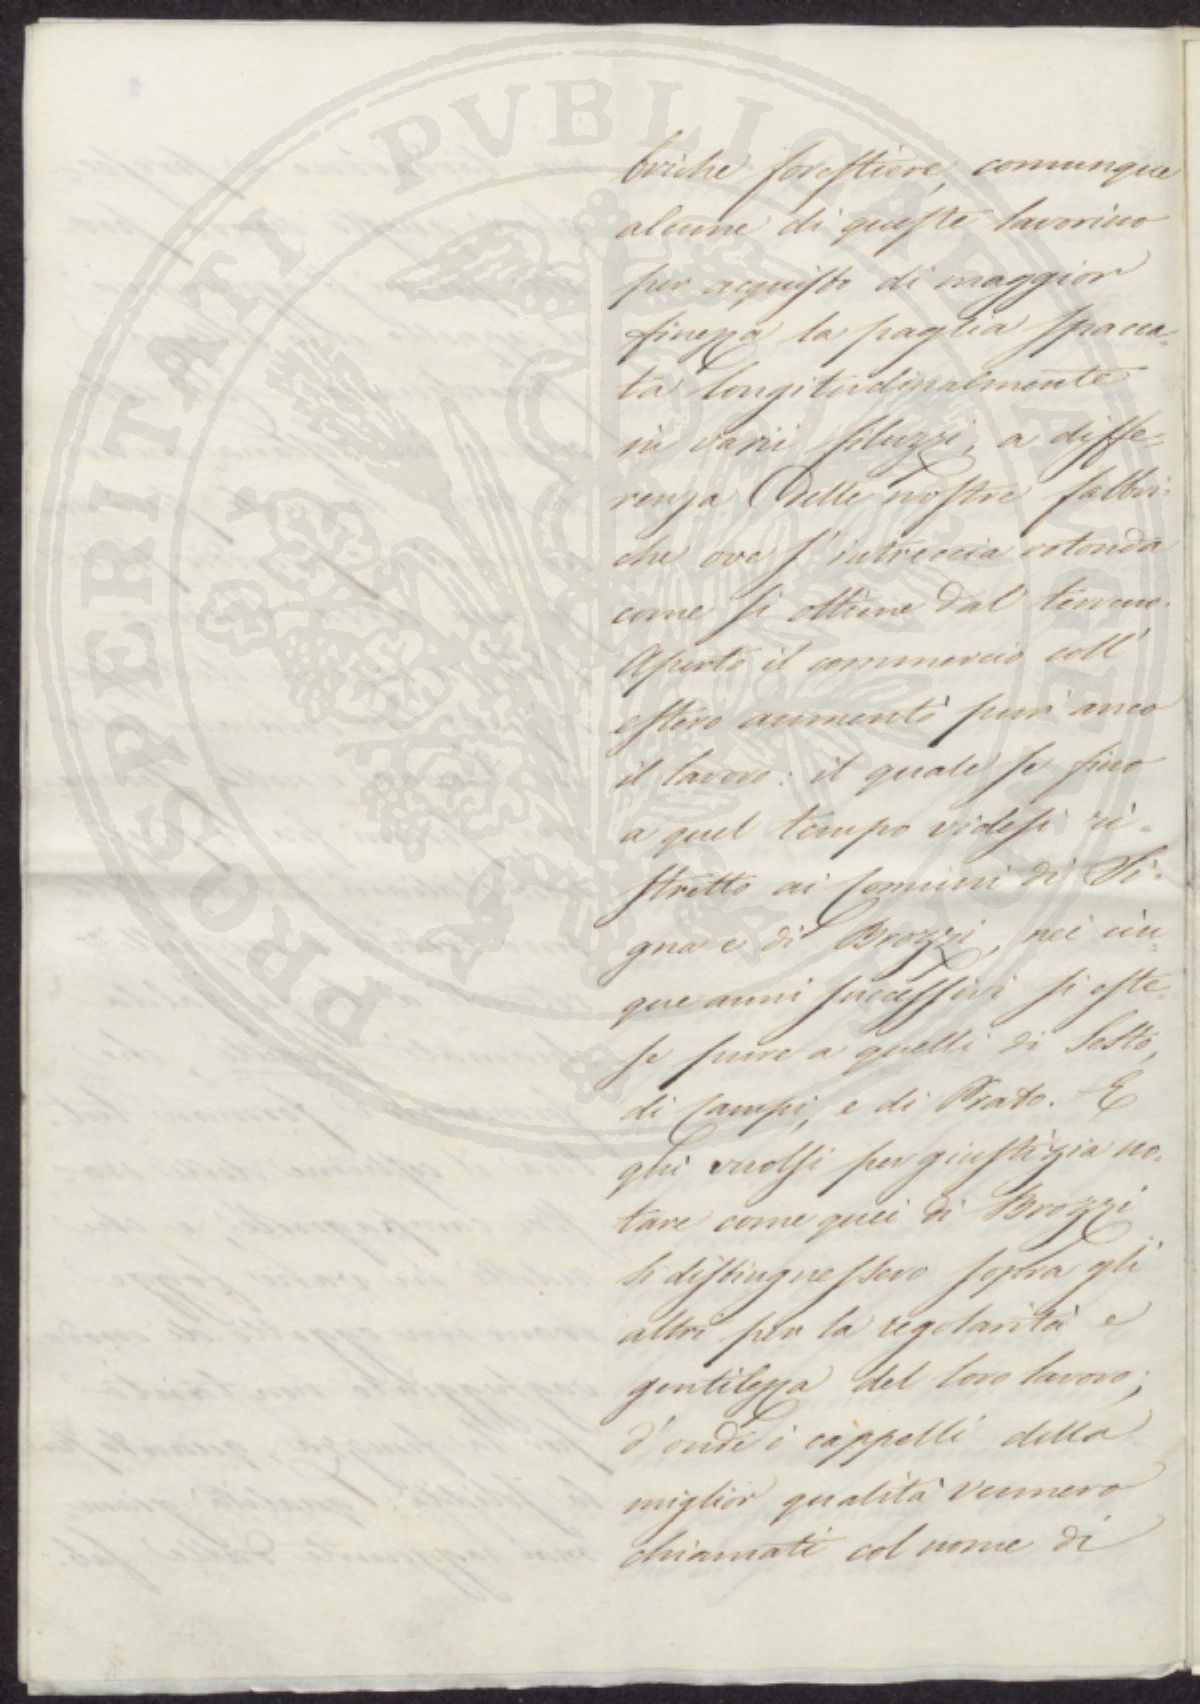 briche forestiere, comunque
alcune di queste lavorino
per acquisto di maggior
finezza la paglia spacca-
ta longitudinalmente
in varii filuzzi, a diffe-
renza delle nostre fabbri-
che ove s'intreccia rotonda
come si ottiene dal terreno.
Aperto il commercio coll'
estero aumentò pur anco
il lavoro: il quale se fino
a quel tempo videsi ri-
stretto ai Comuni di Si-
gna e di Brozzi, nei cin-
que anni successivi si este-
se pure a quelli di Sesto,
di Campi, e di Prato. E
qui vuolsi per giustizia no-
tare come quei di Brozzi
si distinguessero sopra gli
altri per la regolarità e
gentilezza del loro lavoro;
d'onde i cappelli della
miglior qualità vennero
chiamati col nome di
PROSPERITATI PVBLICAE AVGENDAE